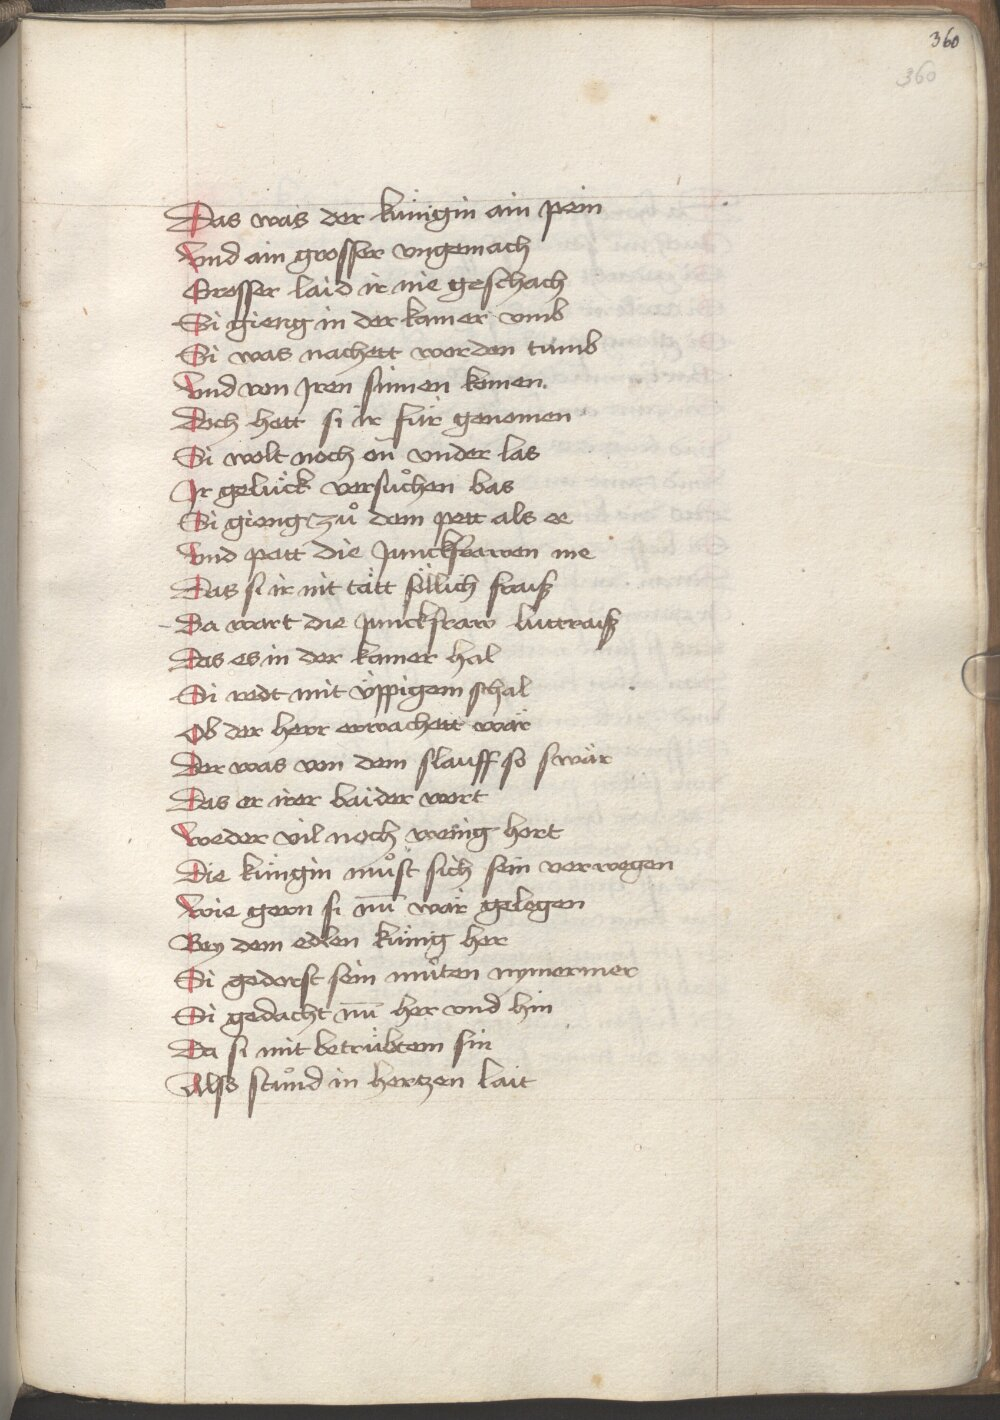 360
360
Das was der künigin ain pein
Vnd ain grosser vngemach
Grosser laid ir nie geschach
Si gieng in der kamer vmb
Si was nachett worden tumb
Vnd von Jren sinnen komen
Doch hett si ir für genomen
Si wolt noch on vnder las
Jr gelück versůchen bas
Si gieng zů dem pett als ee
Vnd patt die junckfrawen me
Das si ir nit tätt söllich fraiß
Da wart die junckfraw luttraiß
Das es in der kamer hal
Si redt mit üppigem schal
Ob der herr erwachett wär
Der was von dem slauff so swär
Das er irer baider wort
Weder vil noch wenig hort
Die küngin můst sich sein verwegen
Wie gern si nū wär gelegen
Bey dem edlen künig her
Si gedorst sein můten nymermer
Si gedacht nū her vnd hin
Da si mit betrübtem sin
Alss stůnd in hertzen lait